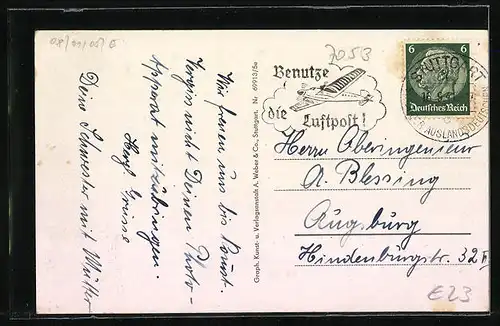 Wir freuen uns bis Sonnt.
Vergiss nicht Deinen Photo-
Apparat mitzubringen.
Herzl. Grüsse
Deine Schwester mit Mutter
Graph. Kunst- u. Verlagsanstalt A. Weber & Co., Stuttgart, Nr 69913/5e
7053
Benutze
die Luftpost!
6 6
Deutsches Reich
STUTTGART
AUSLANDSDEUTSCHEN
Herrn Oberingenieur
A. Blessing
Augsburg
Hindenburgstr. 32 II
E23